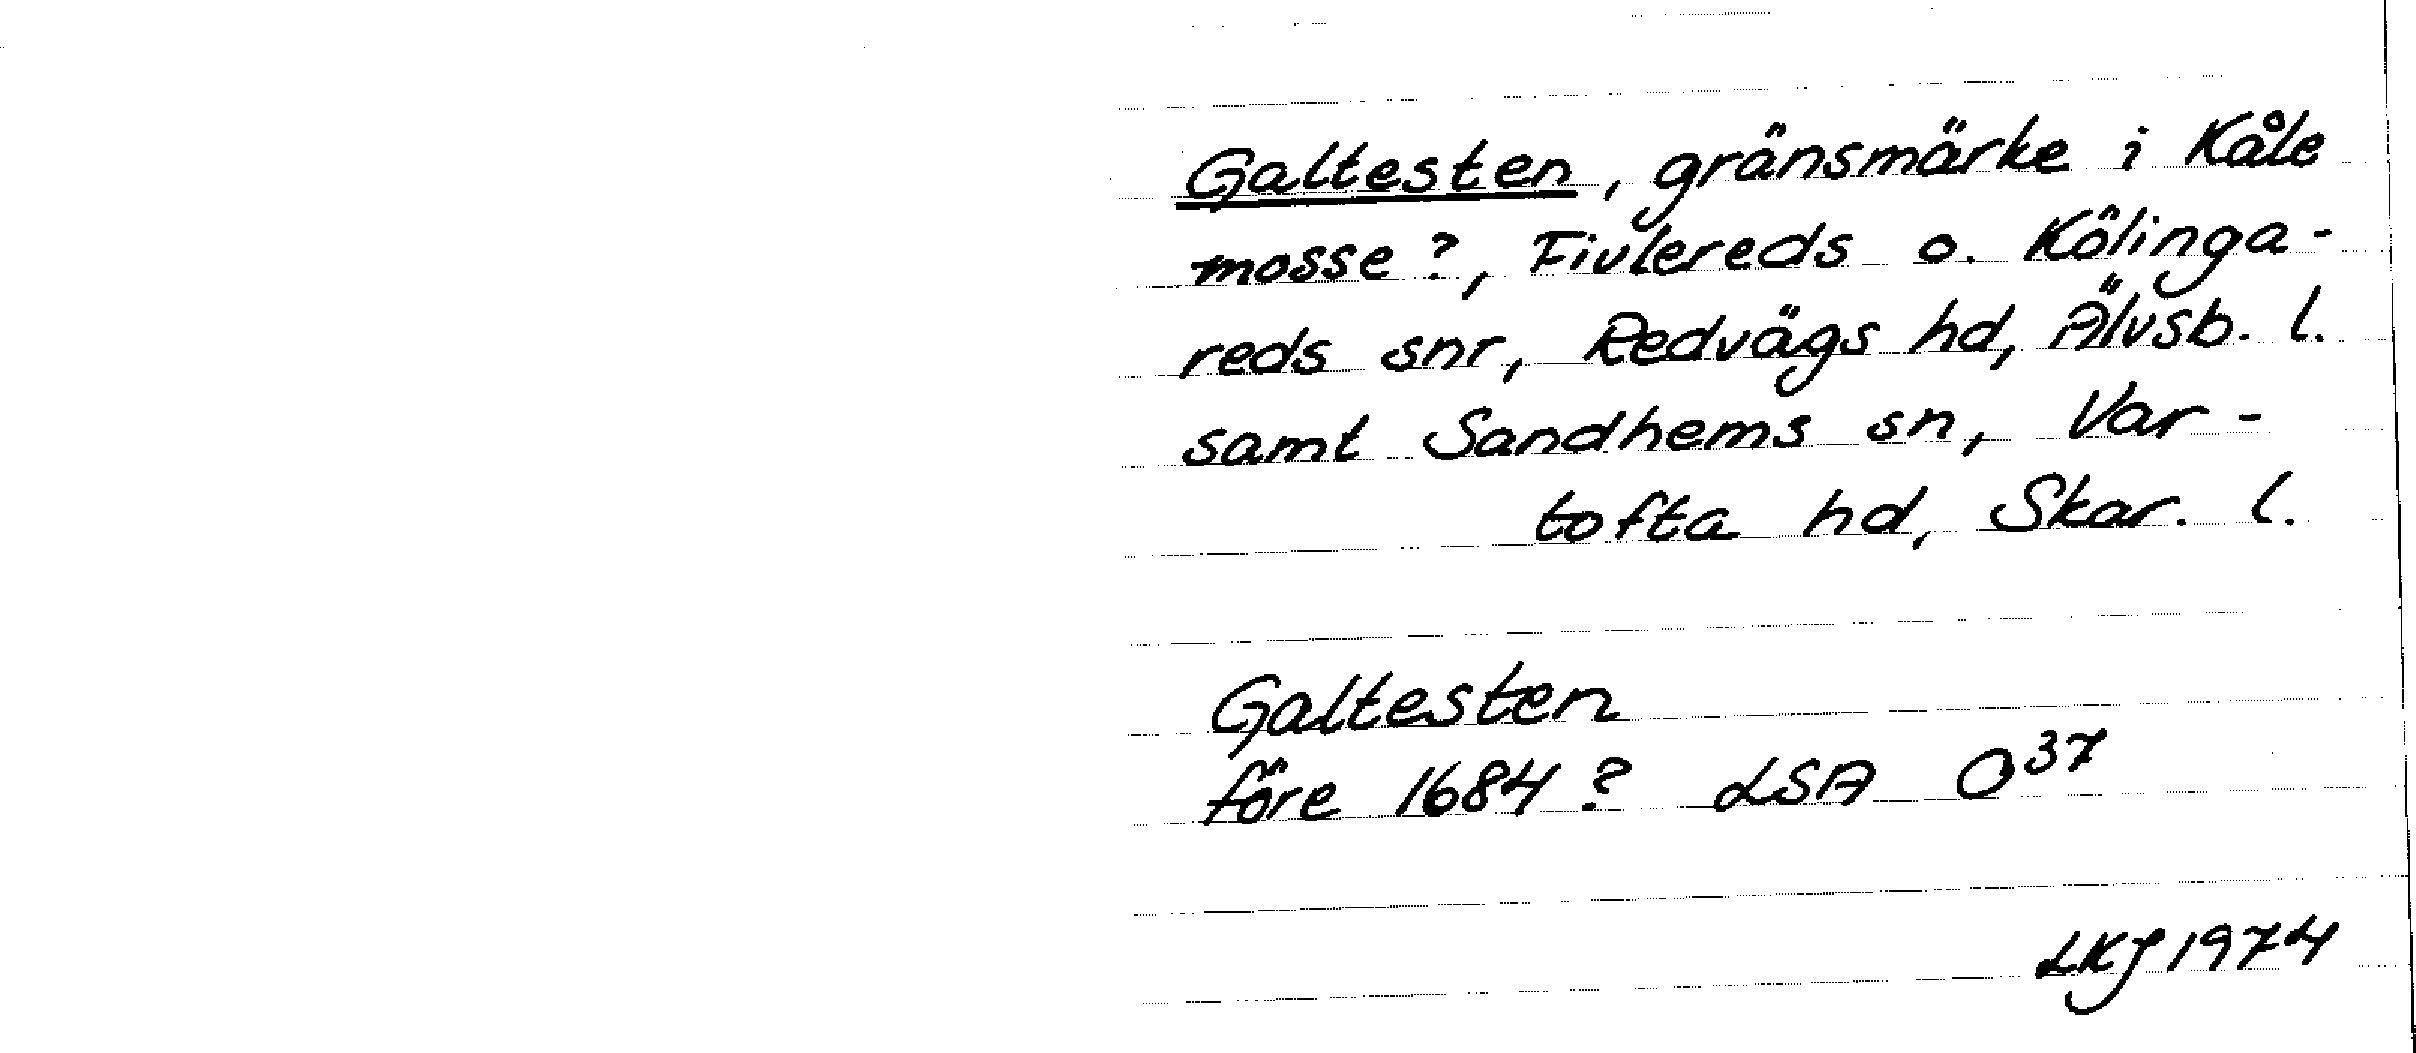 Galtesten, gränsmärke i Kåle
mosse?, Fivlereds o. Kölinga-
reds snr, Redvägs hd, Älvsb. l.
samt Sandhems sn, Var-
tofta hd, Skar. l.
Galtesten
före 1684? LSA O³⁷
LKJ 1974